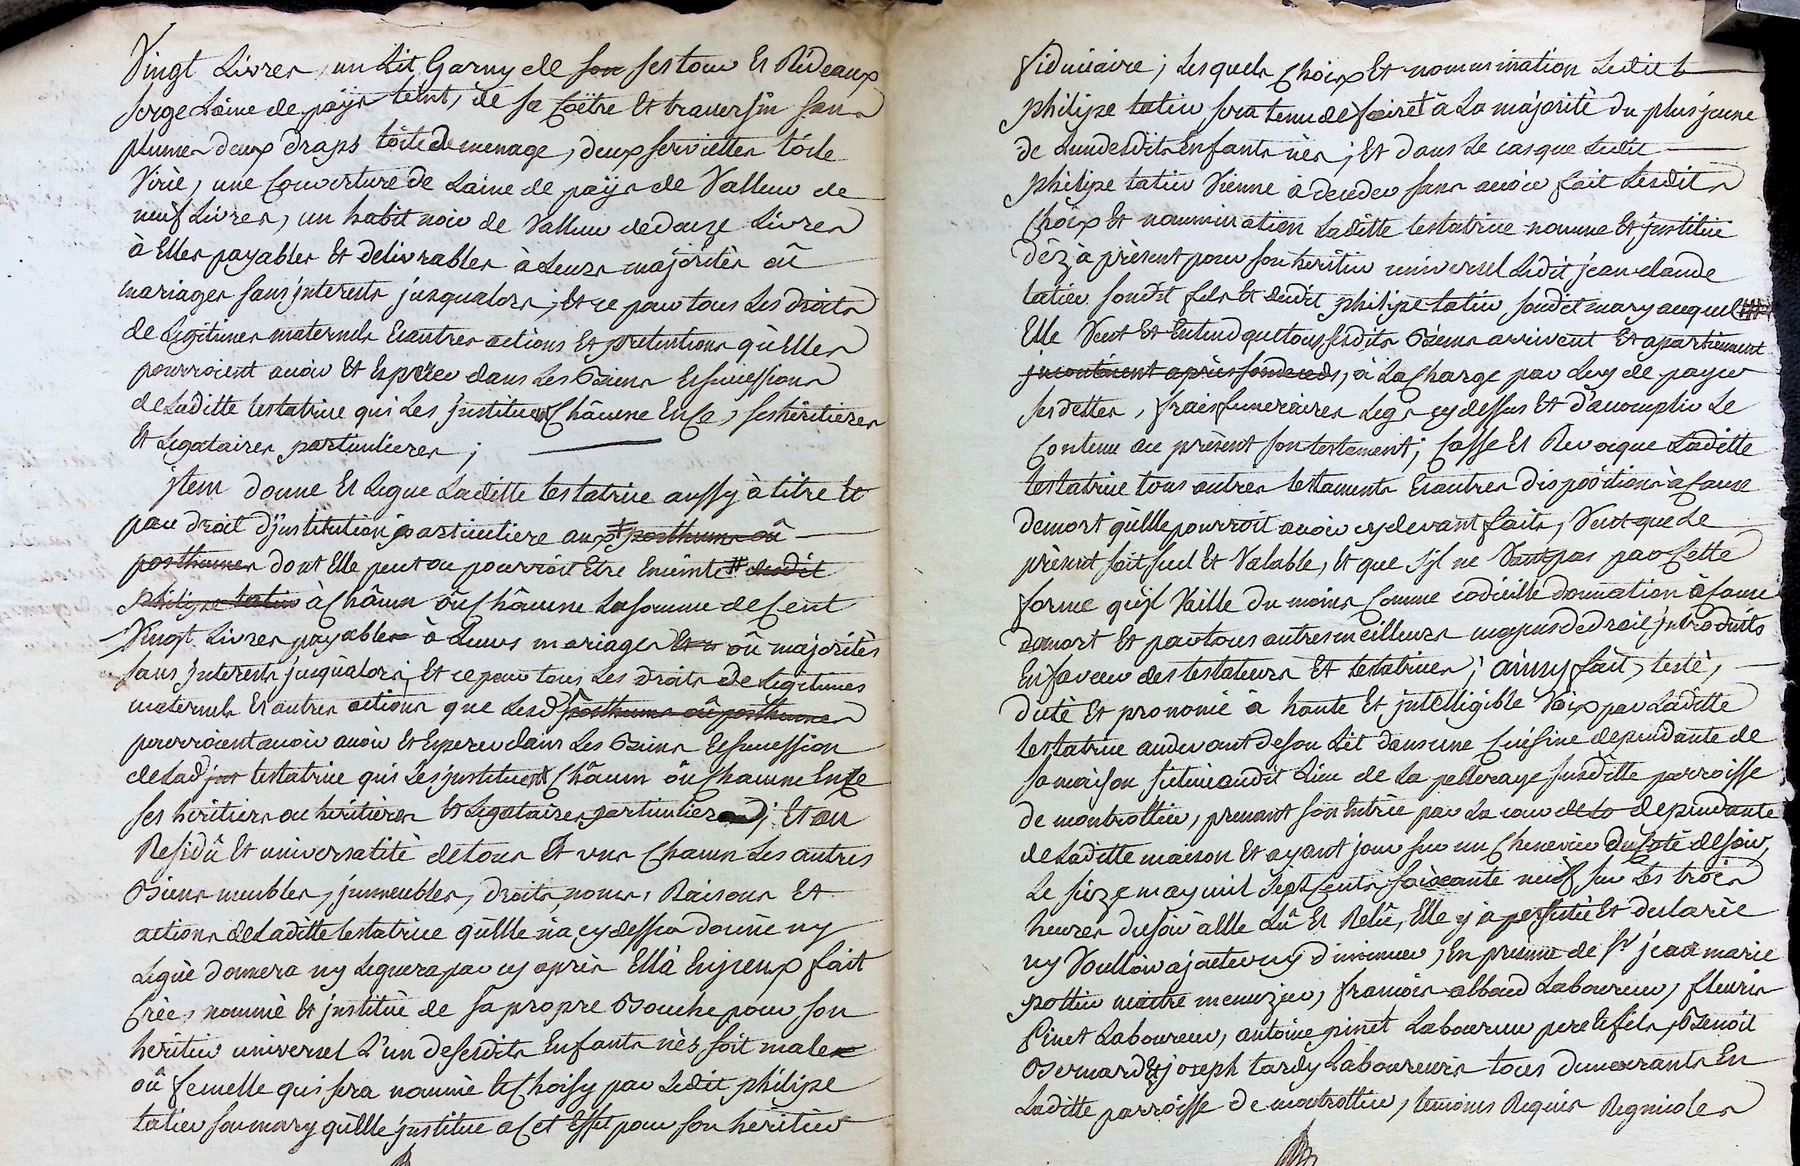 Vingt Livres, un Lit Garny de son ses tour Et Rideaux
serge Laine de païs teint, de sa Coëtre Et traversin sans
plumes deux draps toile de menage, deux serviettes toile
Virie, une Couverture de Laine de païs de Valleur de
neuf Livres, un habit noir de Valleur de douze Livres
à Elles payables Et délivrables à Leurs majorités où
mariages sans jnterests jusqualors; Et ce pour tous Les Droits
de Legitimes maternels Et autres actions Et pretentions qu'Elles
pourroient avoir Et Esperer dans Les Biens Et successions
de Laditte testatrice qui Les jnstitue Châcune En Ce, ses hèritieres
Et Legataires particulieres;
jtem donne Et Legue Laditte testatrice aussy à titre Et
par droit d'jnstitution particuliere aux posthume où
posthumes dont Elle peut ou pourroit Etre Enceinte # dudit
philipe tatier à Châcun où Châcune La somme de Cent
Vingt Livres payables à Leurs mariages Et a où majorités
sans jnterests jusqualors; Et ce pour tous Les Droits de Legitimes
maternels Et autres actions que Lesd posthume où posthumes
pourroient avoir avoir Et Esperer dans Les Biens Et succession
de Lad testatrice qui Les jnstituent Châcun où Chacune En Ce
ses hèritiers ou hèritieres Et Legataires particuliers; Et au
Residû Et universalité de tous Et uns Chacun Les autres
Biens meubles, jmmeubles, droits, noms, Raisons Et
actions de Laditte testatrice qu'Elle n'a cy dessus donné ny
Legué donnera ny Leguera par cy après Ella En jceux fait
Créé, nommé Et jnstitué de sa propre Bouche pour son
heritier universel L'un de sesdits Enfants nés soit male
où femelle qui sera nommé Et Choisy par Ledit philipe
tatier son mary qu'Elle jnstitue a Cet Effet pour son hèritier
fiduciaire; Lesquels Choix Et nommination Ledit
philipe tatier sera tenu de faire à La majorité du plus jeune
de L'un desdits Enfants nés; Et dans Le cas que Ledit
philipe tatier Vienne à deceder sans avoir fait Lesdits
Choix Et nommination Laditte testatrice nomme Et jnstitue
dèz à présent pour son heritier universel Ledit jean claude
tatier sondit fils Et dudit philipe tatier sondit mary auquel
Elle Veut Et Entend que tous sesdits Biens arrivent Et apartiennent
jncontinent après son deceds, à La Charge par Luy de payer
ses dettes, frais funeraires Legs cy dessus Et d'accomplir Le
Contenu au présent son testament; Casse Et Revoque Laditte
testatrice tous autres testaments Et autres dispositions à Cause
de mort qu'Elle pourroit avoir cy devant faits, Veut que Le
présent soit seul Et Valable, Et que s'jl ne Vaut pas par Cette
forme qu'jl Vaille du moins Comme codicille donnation à Cause
de mort Et par tous autres meilleurs moyens de droit jntroduits
En faveur des testateurs Et testatrices; ainsy fait, testé,
dicté Et prononcé à haute Et jntelligible Voix par Laditte
testatrice au devant de son Lit dans une Cuisine dependante de
sa maison sittuée audit Lieu de La pelleraye susditte parroisse
de montrottier, prenant son Entrée par La cour de La dependante
de Laditte maison Et ayant jour sur un Chenevier du Coté de soir,
Le seize may mil sept cents soixante neuf sur Les trois
heures du soir à Elle Lû Et Relû, Elle y a persisté Et declarée
ny Voulloir ajoùter ny diminuer, En presence de Sr jean marie
pottier maitre menuzier, françois albaud Laboureur, fleurie
Pinet Laboureur, antoine pinet Laboureur pere Et fils, Benoit
Bernard Et joseph tardy Laboureurs tous demeurants En
Laditte parroisse de montrottier, temoins Requis Regnicoles